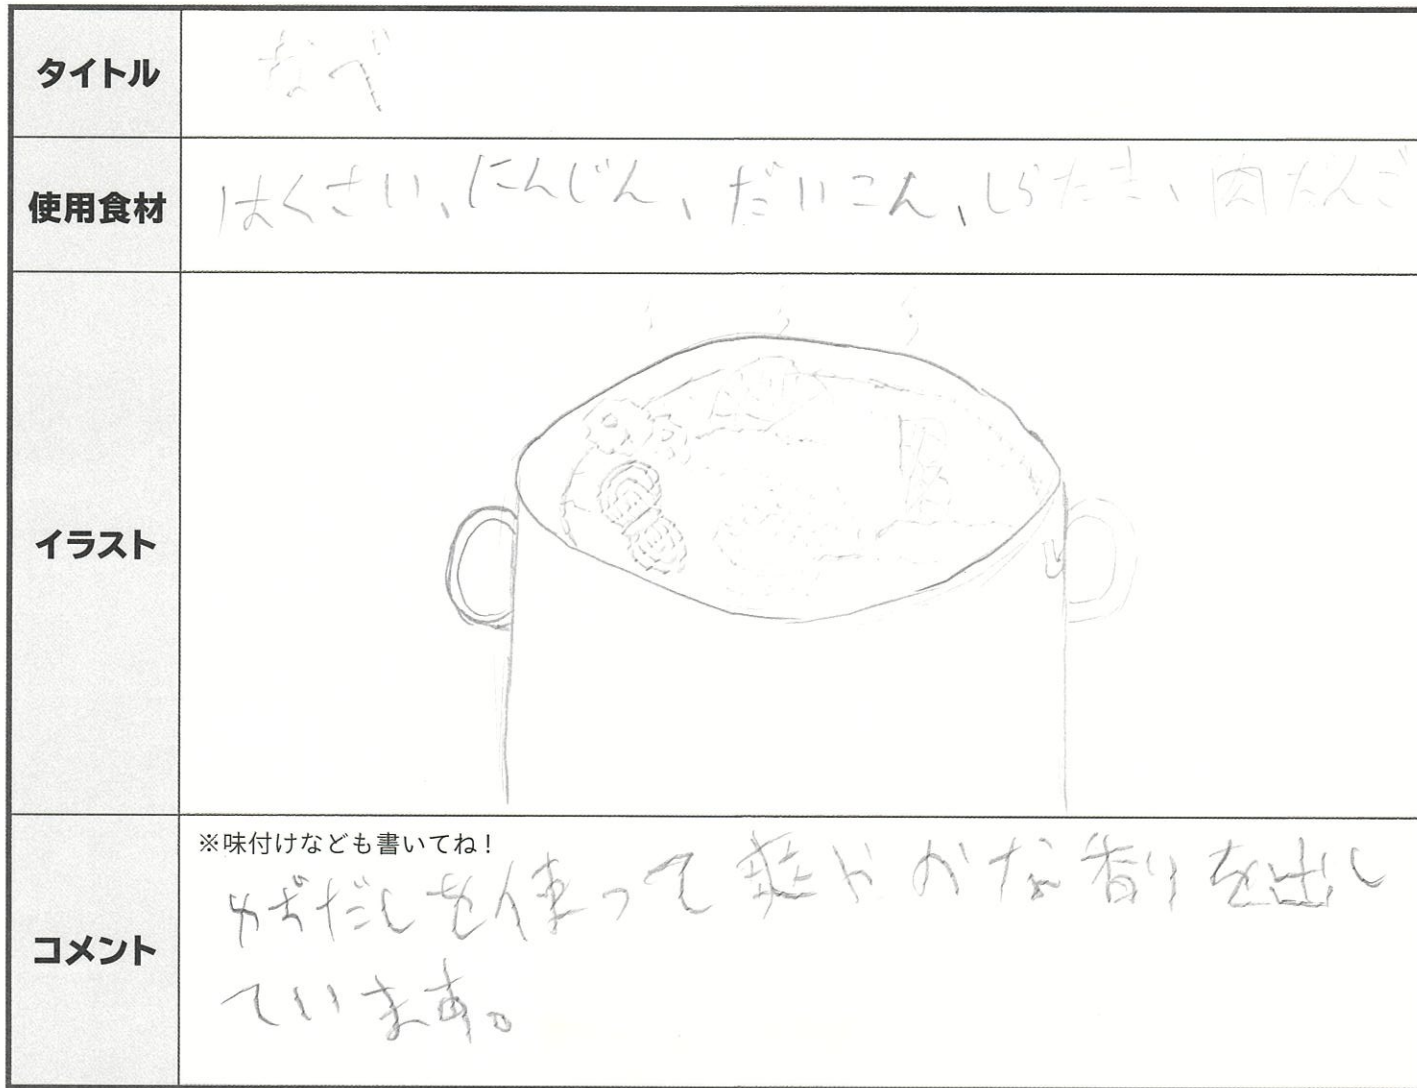 タイトル
なべ
使用食材
はくさい、にんじん、だいこん、しらたき、肉だんご
イラスト
※味付けなども書いてね!
コメント
ゆずだしを使って爽やかな香りを出し
ています。